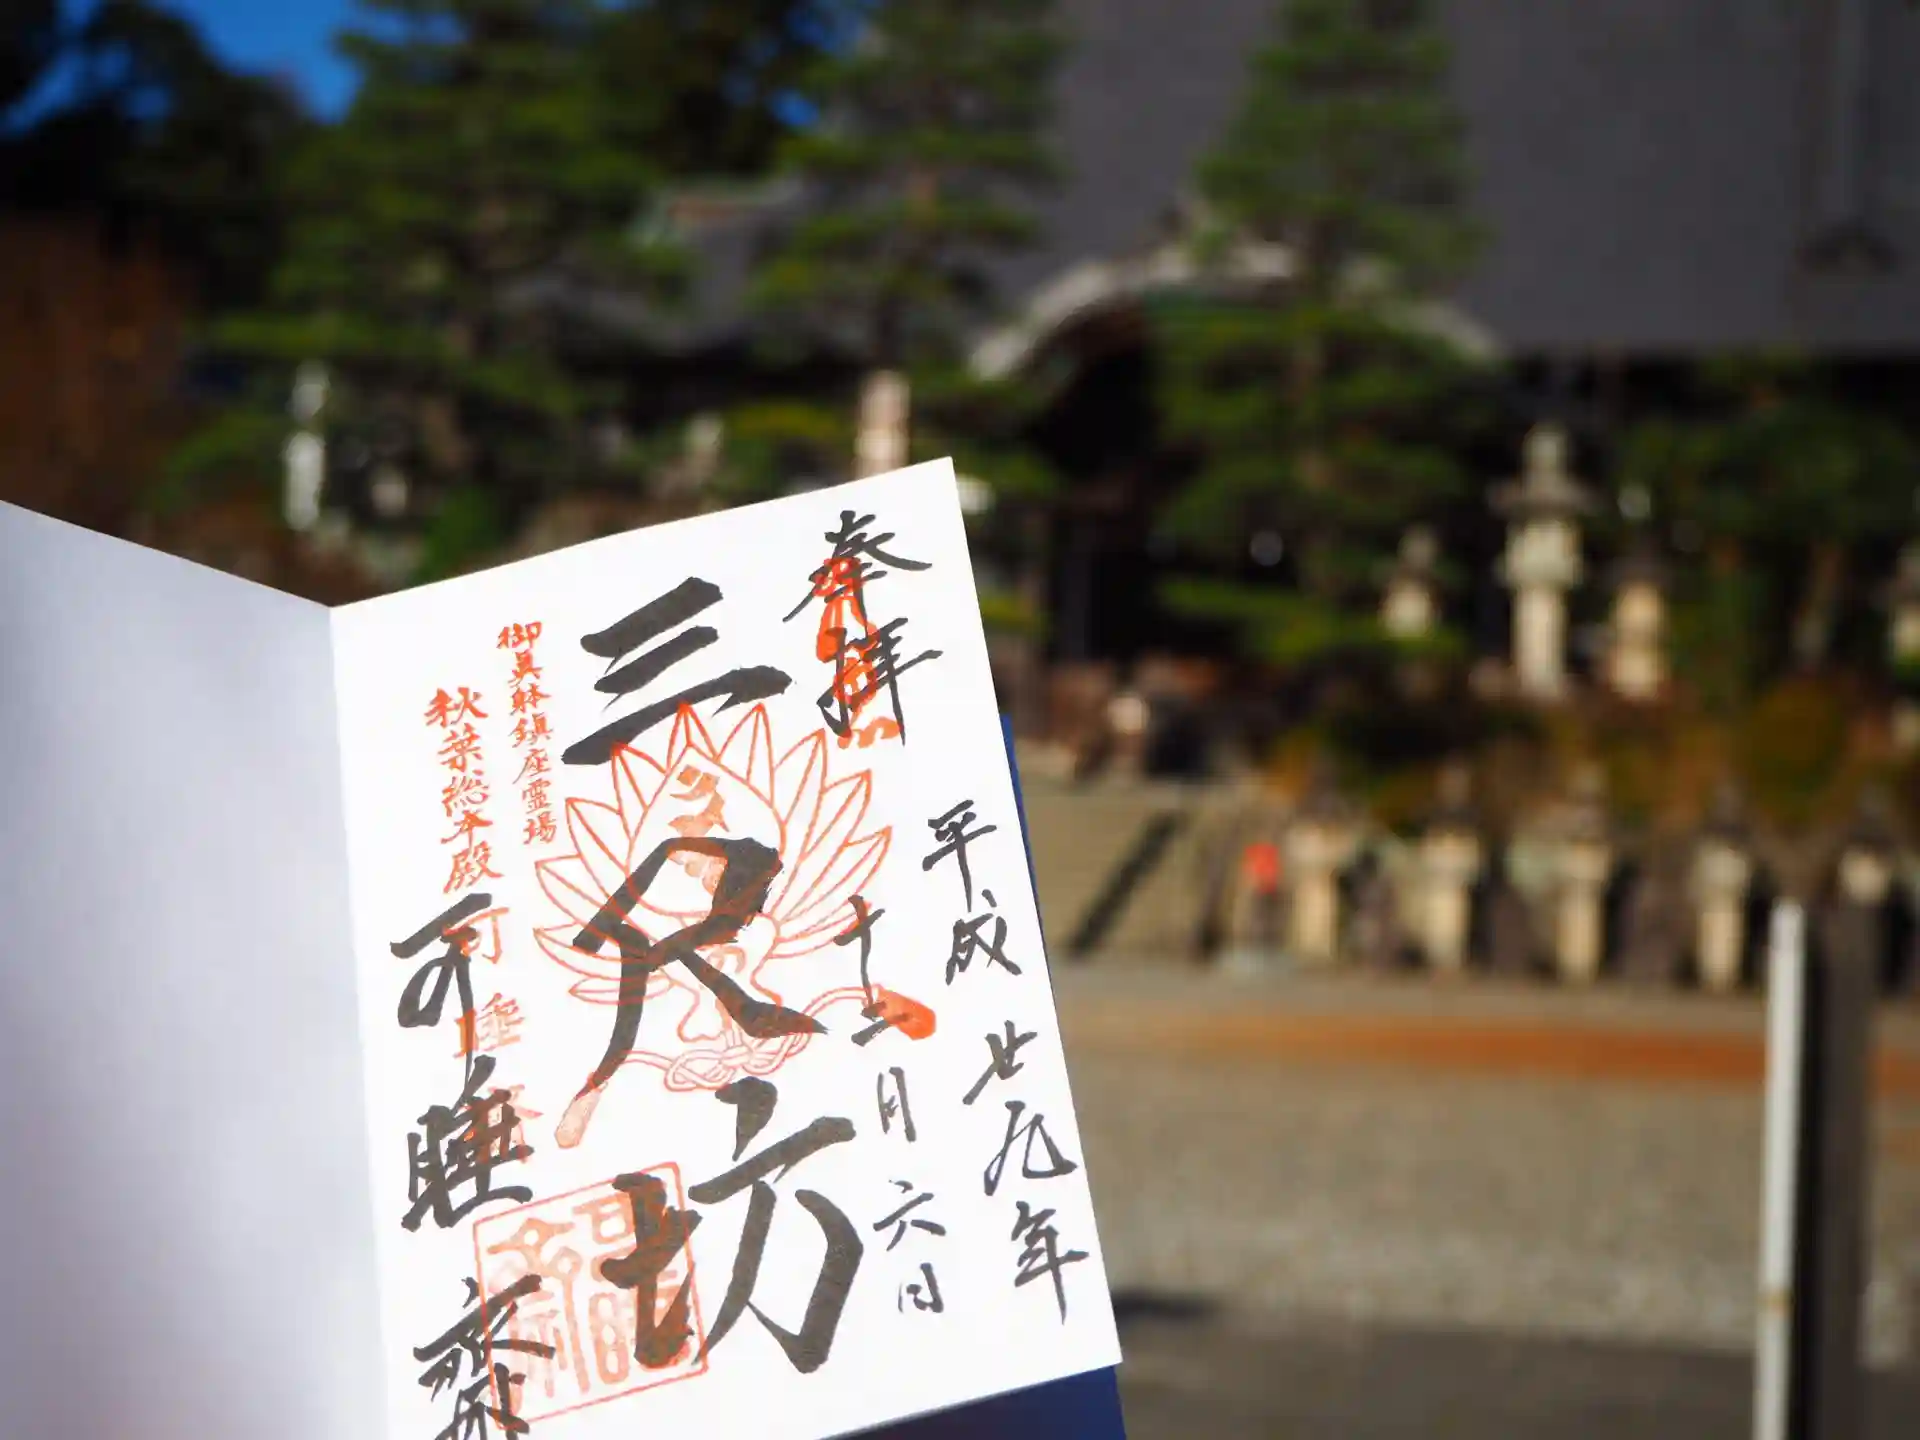 奉拝
平成廿九年
十二月六日
三尺坊
御真躰鎮座霊場
秋葉総本殿
可睡斎
可睡齋